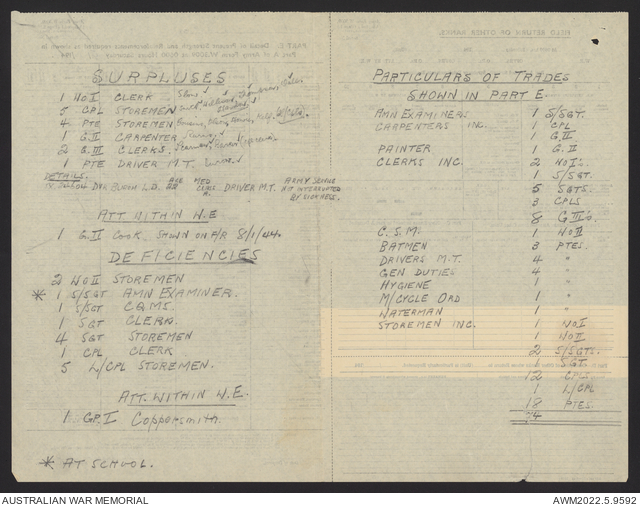 SURPLUSES
1 WOI CLERK
5 CPL STOREMEN
4 PTE STOREMEN
1 G.II CARPENTER
2 G.III CLERKS.
1 PTE DRIVER M.T.
DETAILS.
DVR L.D. DRIVER M.T. ARMY SERVICE
NOT INTERRUPTED
BY SICKNESS.
ATT. WITHIN W.E
1 G.II COOK. SHOWN ON F/R 8/1/44.
DEFICIENCIES
2 WOII STOREMEN
* 1 S/SGT AMN EXAMINER.
1 S/SGT C.Q.M.S.
1 SGT CLERK.
4 SGT STOREMEN
1 CPL CLERK
5 L/CPL STOREMEN.
ATT. WITHIN W.E.
1 GP.I Coppersmith.
* AT SCHOOL.
FIELD RETURN OF OTHER RANKS
PARTICULARS OF TRADES
SHOWN IN PART E.
AMN EXAMINERS 1 S/SGT.
CARPENTERS INC. 1 CPL
1 G.II
PAINTER 1 G.II
CLERKS INC. 2 WOI's.
1 S/SGT.
5 SGTS.
3 CPLS
8 G III's.
C.S.M. 1 WOII
BATMEN 3 PTES.
DRIVERS M.T. 4 "
GEN DUTIES 4 "
HYGIENE 1 "
M/CYCLE ORD 1 "
WATERMAN 1 "
STOREMEN INC. 1 WOI
1 WOII
2 S/SGTS.
1 SGT.
12 CPLS.
1 L/CPL
18 PTES.
74
AUSTRALIAN WAR MEMORIAL
AWM2022.5.9592